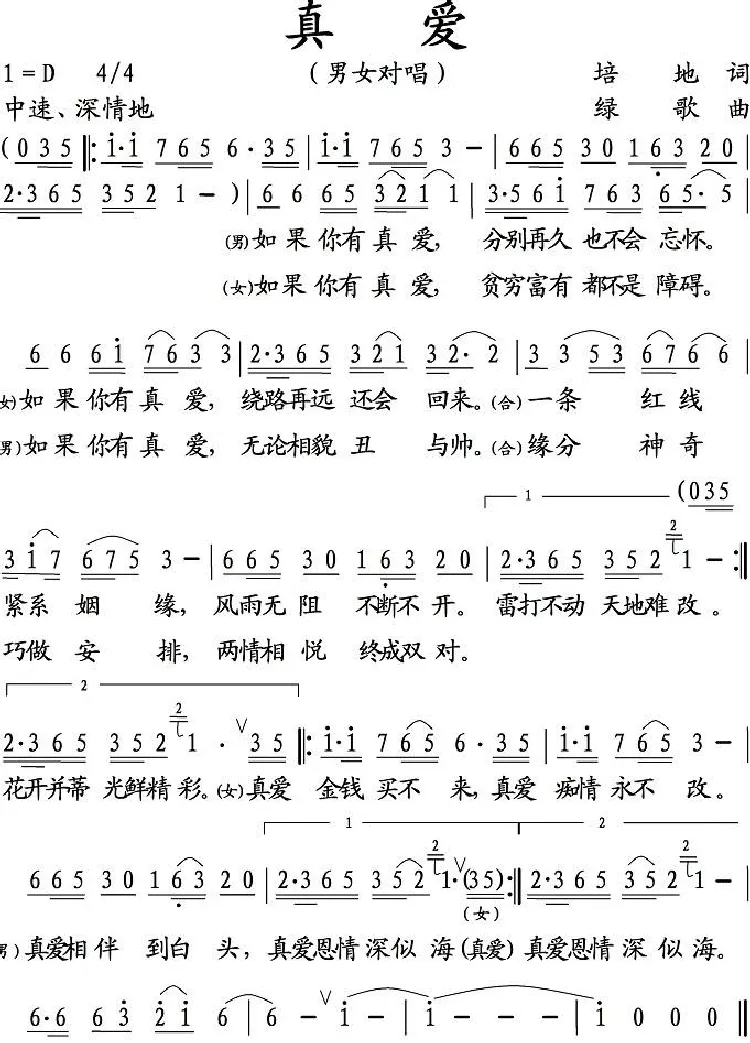 真 爱
1=D 4/4 （男女对唱） 培 地 词
中速、深情地 绿 歌 曲
(0 3 5 ‖: i·i 7 6 5 6·3 5 | i·i 7 6 5 3 － | 6 6 5 3 0 1 6 3 2 0 |
2·3 6 5 3 5 2 1 －) | 6 6 6 5 3 2 1 1 | 3·5 6 i 7 6 3 6 5· 5 |
(男)如果你有真 爱, 分别再久 也不会 忘怀。
(女)如果你有真 爱, 贫穷富有 都不是 障碍。
6 6 6 i 7 6 3 3 | 2·3 6 5 3 2 1 3 2· 2 | 3 3 5 3 6 7 6 6 |
女)如果你有真 爱, 绕路再远 还会 回来。(合)一条 红线
男)如果你有真 爱, 无论相貌 丑 与帅。(合)缘分 神奇
1 (0 3 5
3 i 7 6 7 5 3 － | 6 6 5 3 0 1 6 3 2 0 | 2·3 6 5 3 5 2 2 1 － :‖
紧系 姻 缘, 风雨无 阻 不断不 开。 雷打不动 天地难 改。
巧做 安 排, 两情相 悦 终成双 对。
2
2·3 6 5 3 5 2 2 1 · ∨ 3 5 ‖: i·i 7 6 5 6·3 5 | i·i 7 6 5 3 － |
花开并蒂 光鲜精彩。(女)真爱 金钱 买不 来, 真爱 痴情 永不 改。
1 2
6 6 5 3 0 1 6 3 2 0 | 2·3 6 5 3 5 2 2 1· ∨ (3 5) :‖ 2·3 6 5 3 5 2 2 1 － |
(女)
男)真爱相 伴 到白 头, 真爱恩情 深似 海(真爱) 真爱恩情 深 似 海。
6·6 6 3 2 i 6 | 6 － ∨ i － | i － － － | i 0 0 0 ‖